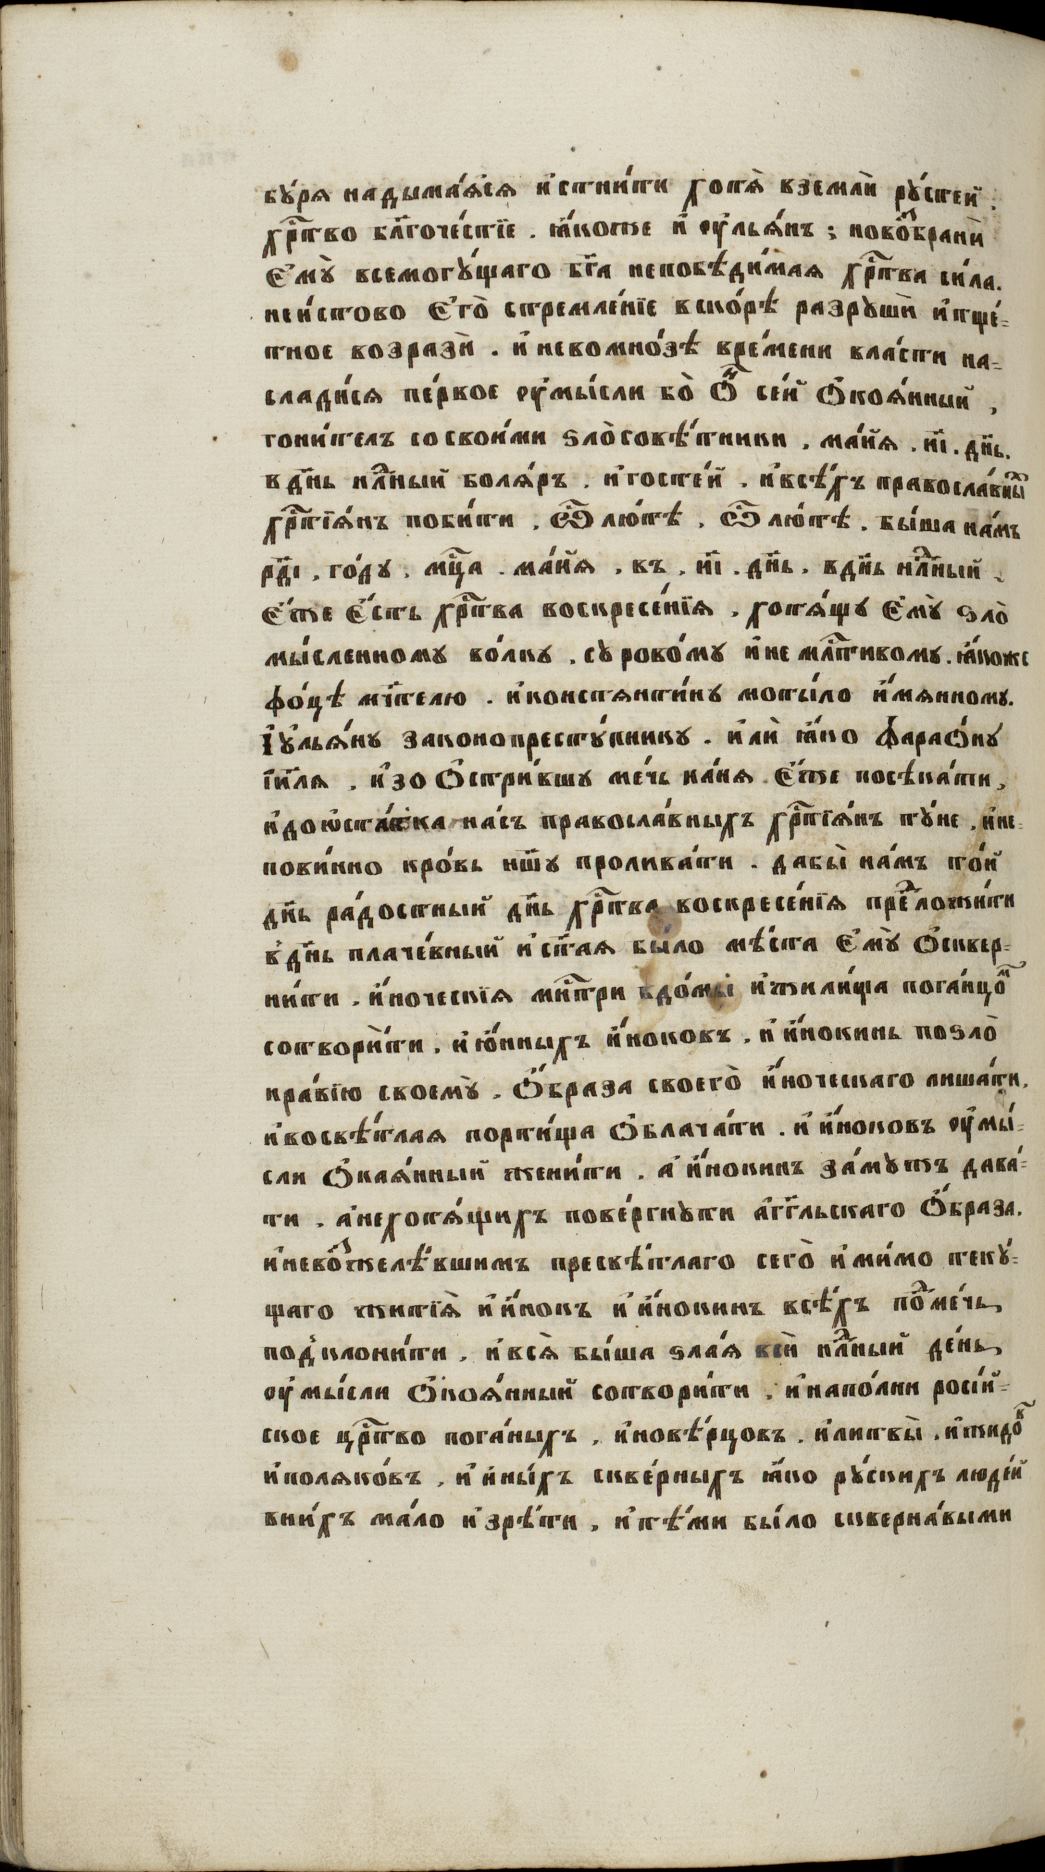 бꙋ́рѧ надыма́ѧсѧ и҆стни́ти хотѧ̀ вземлѝ рꙋ́стей :
хрⷭ҇тво блг҃оче́стїе . ꙗ҆́коже и҆ ᲂу҆лья́нъ ; новоⷥбранѝ
Е҆мꙋ̀ всемогꙋ́щаго бг҃а непобѣди́маѧ хрⷭ҇тва си́ла.
неи́стово Е҆го̀ стремле́нїе вско́рѣ разрꙋшѝ и҆тще́-
тное возразѝ . и҆ невомно́зѣ вре́мени вла́сти на-
слади́сѧ пе́рвое ᲂу҆мы́сли бо̀ Ѻ҆́ⷩ се́й Ѻ҆коѧ́нный ,
гони́тель со свои́ми ѕло̀совѣ́тники . ма́їѧ . и҃і . дн҃ь.
в дн҃ь нⷣлный болѧ́ръ . и҆госте́й . и҆всѣ́хъ правосла́вныⷯ
хрⷭ҇тїѧ́нъ поби́ти . Ѽ лю́тѣ , Ѽ лю́тѣ . бы́ша на́мъ
рд҃і . го́дꙋ . мцⷭ҇а . ма́їѧ . въ . и҃і . дн҃ь . в дн҃ь нⷣлный
Е҆́же Е҆́сть хрⷭ҇тва воскресе́нїѧ . хотѧ́щꙋ Е҆мꙋ̀ ѕло̀
мы́сленномꙋ во́лкꙋ . сꙋрово́мꙋ и҆не млⷭ҇тивомꙋ . ꙗ҆́коже
фо́цѣ мч҃телю . и҆констѧнти́нꙋ моты́ло и҆́мѧнномꙋ.
І҆ꙋльѧ́нꙋ законопрестꙋ́пникꙋ . и҆лѝ ꙗ҆́ко фараѻ́нꙋ
і҆и҃лѧ . и҆зо Ѻ҆стри́вшꙋ ме́чь на́нѧ Е҆́же посѣка́ти ,
и҆доѡ҆ста́тка на́съ правосла́вныхъ хрⷭ҇тїѧ́нъ тꙋ́не . и҆не-
пови́нно кро́вь нш҃ꙋ пролива́ти . дабы̀ на́мъ то́й
дн҃ь ра́достный дн҃ь хрⷭ҇тва воскресе́нїѧ преⷣложи́ти
в дн҃ь плаче́вный и҆ ст҃аѧ бы́ло мѣ́ста Е҆мꙋ̀ Ѻ҆сквер-
ни́ти . и҆́ноческїѧ мнⷭ҇три вдо́мы и҆жили́ща пога́нцоⷨ
сотвори́ти . и҆ ю҆́нныхъ и҆́ноковъ . и҆ и҆́нокинь поѕло̀
нра́вїю своемꙋ̀ . Ѻ҆́браза своегѡ̀ и҆́ноческаго лиша́ти.
и҆восвѣ́тлаѧ порти́ща Ѻ҆блача́ти . и҆ и҆́ноковъ ᲂу҆мы́-
сли Ѻ҆каѧ́нный жени́ти . а҆ и҆́нокинь за́мꙋжъ дава́-
ти . а҆нехотѧ́щихъ пове́ргнꙋти а҆́гг҃льскаго Ѻ҆́браза.
и҆невоⷥжелѣ́вшимъ пресвѣ́тлаго сего̀ и҆мимо текꙋ́-
щаго житїѧ̀ и҆ и҆́нокъ и҆ и҆́нокинъ всѣ́хъ поⷣ ме́чь
под̾клони́ти . и҆ всѧ̀ бы́ша ѕла́ѧ всі́й нⷣлный де́нь
ᲂу҆мы́сли Ѻ҆коѧ́нный сотвори́ти . и҆напо́лни росі́й-
ское црⷭ҇тво пога́ныхъ . и҆новѣ́рцовъ . и҆литвы̀ . и҆жидоⷡ
и҆полѧко́въ . и҆ и҆ны́хъ скве́рныхъ ꙗ҆́ко рꙋ́скихъ люде́й
вни́хъ ма́ло и҆зрѣ́ти . и҆ тѣ́ми бы́ло скверна́выми